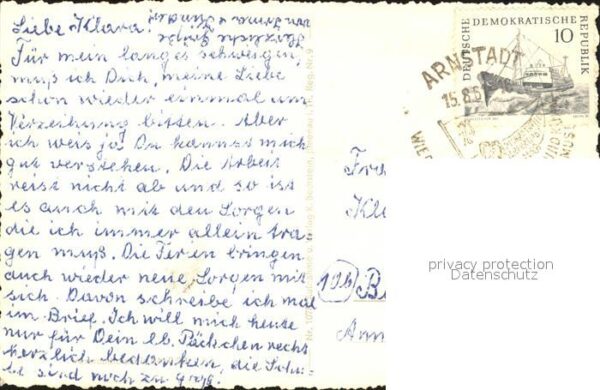 Liebe Klara!
Für mein langes schweigen,
muß ich Dich, meine Liebe
schon wieder einmal um
Verzeihung bitten. Aber
ich weis ja, Du kannst mich
gut verstehen. Die Arbeit
reist nicht ab und so ist
es auch mit den Sorgen
die ich immer allein tra
gen muß. Die Ferien bringen
auch wieder neue Sorgen mit
sich. Davon schreibe ich mal
im Brief. Ich will mich heute
nur für Dein lb. Päckchen recht
herzlich bedanken, die Schu-
he sind noch zu groß.
DEUTSCHE DEMOKRATISCHE REPUBLIK
10
ARNSTADT
15.8.6
Fr
Kl
(10b) B
Ann
privacy protection
Datenschutz